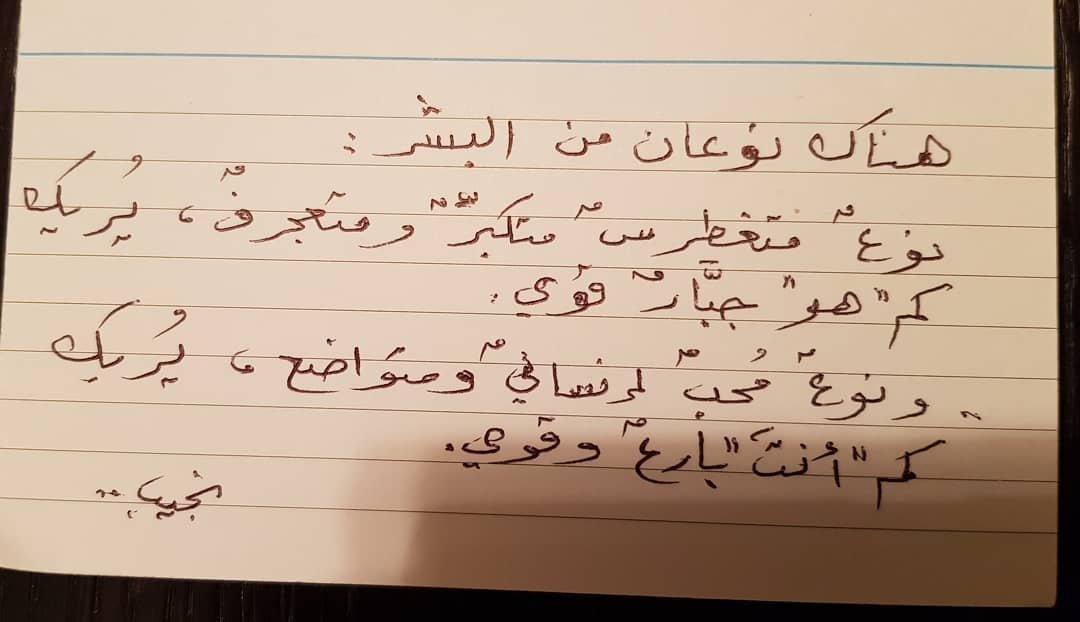 هناك نوعان من البشر :
نوعٌ متغطرسٌ متكبرٌّ ومتعجرفٌ، يُريك
كم "هو" جبَّارٌ قوي.
ونوعٌ مُحبٌ إنسانيٌ ومتواضع، يُريك
كم "أنتَ" بارعٌ وقوي.
نجيب..